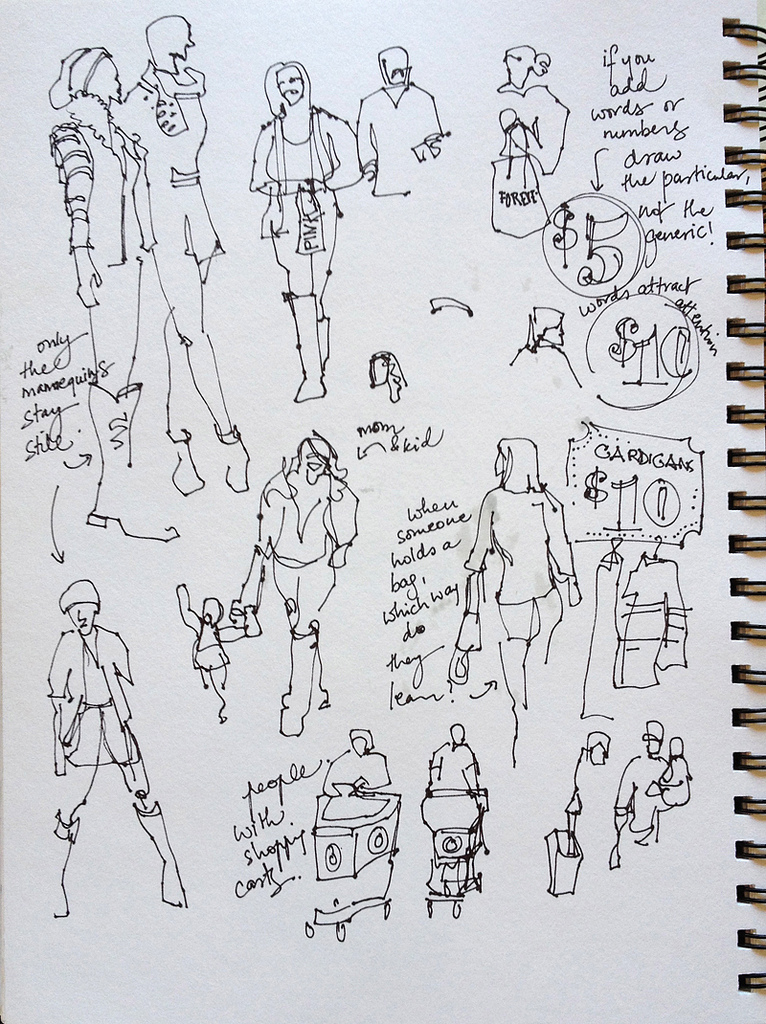 if you
add
words or
numbers
draw
the particular,
not the
generic!
FOREVE
$5
PINK
words attract
attention
$10
only
the
mannequins
stay
still.
mom
& kid
CARDIGANS
$10
when
someone
holds a
bag,
which way
do
they
lean?
people
with
shopping
carts.